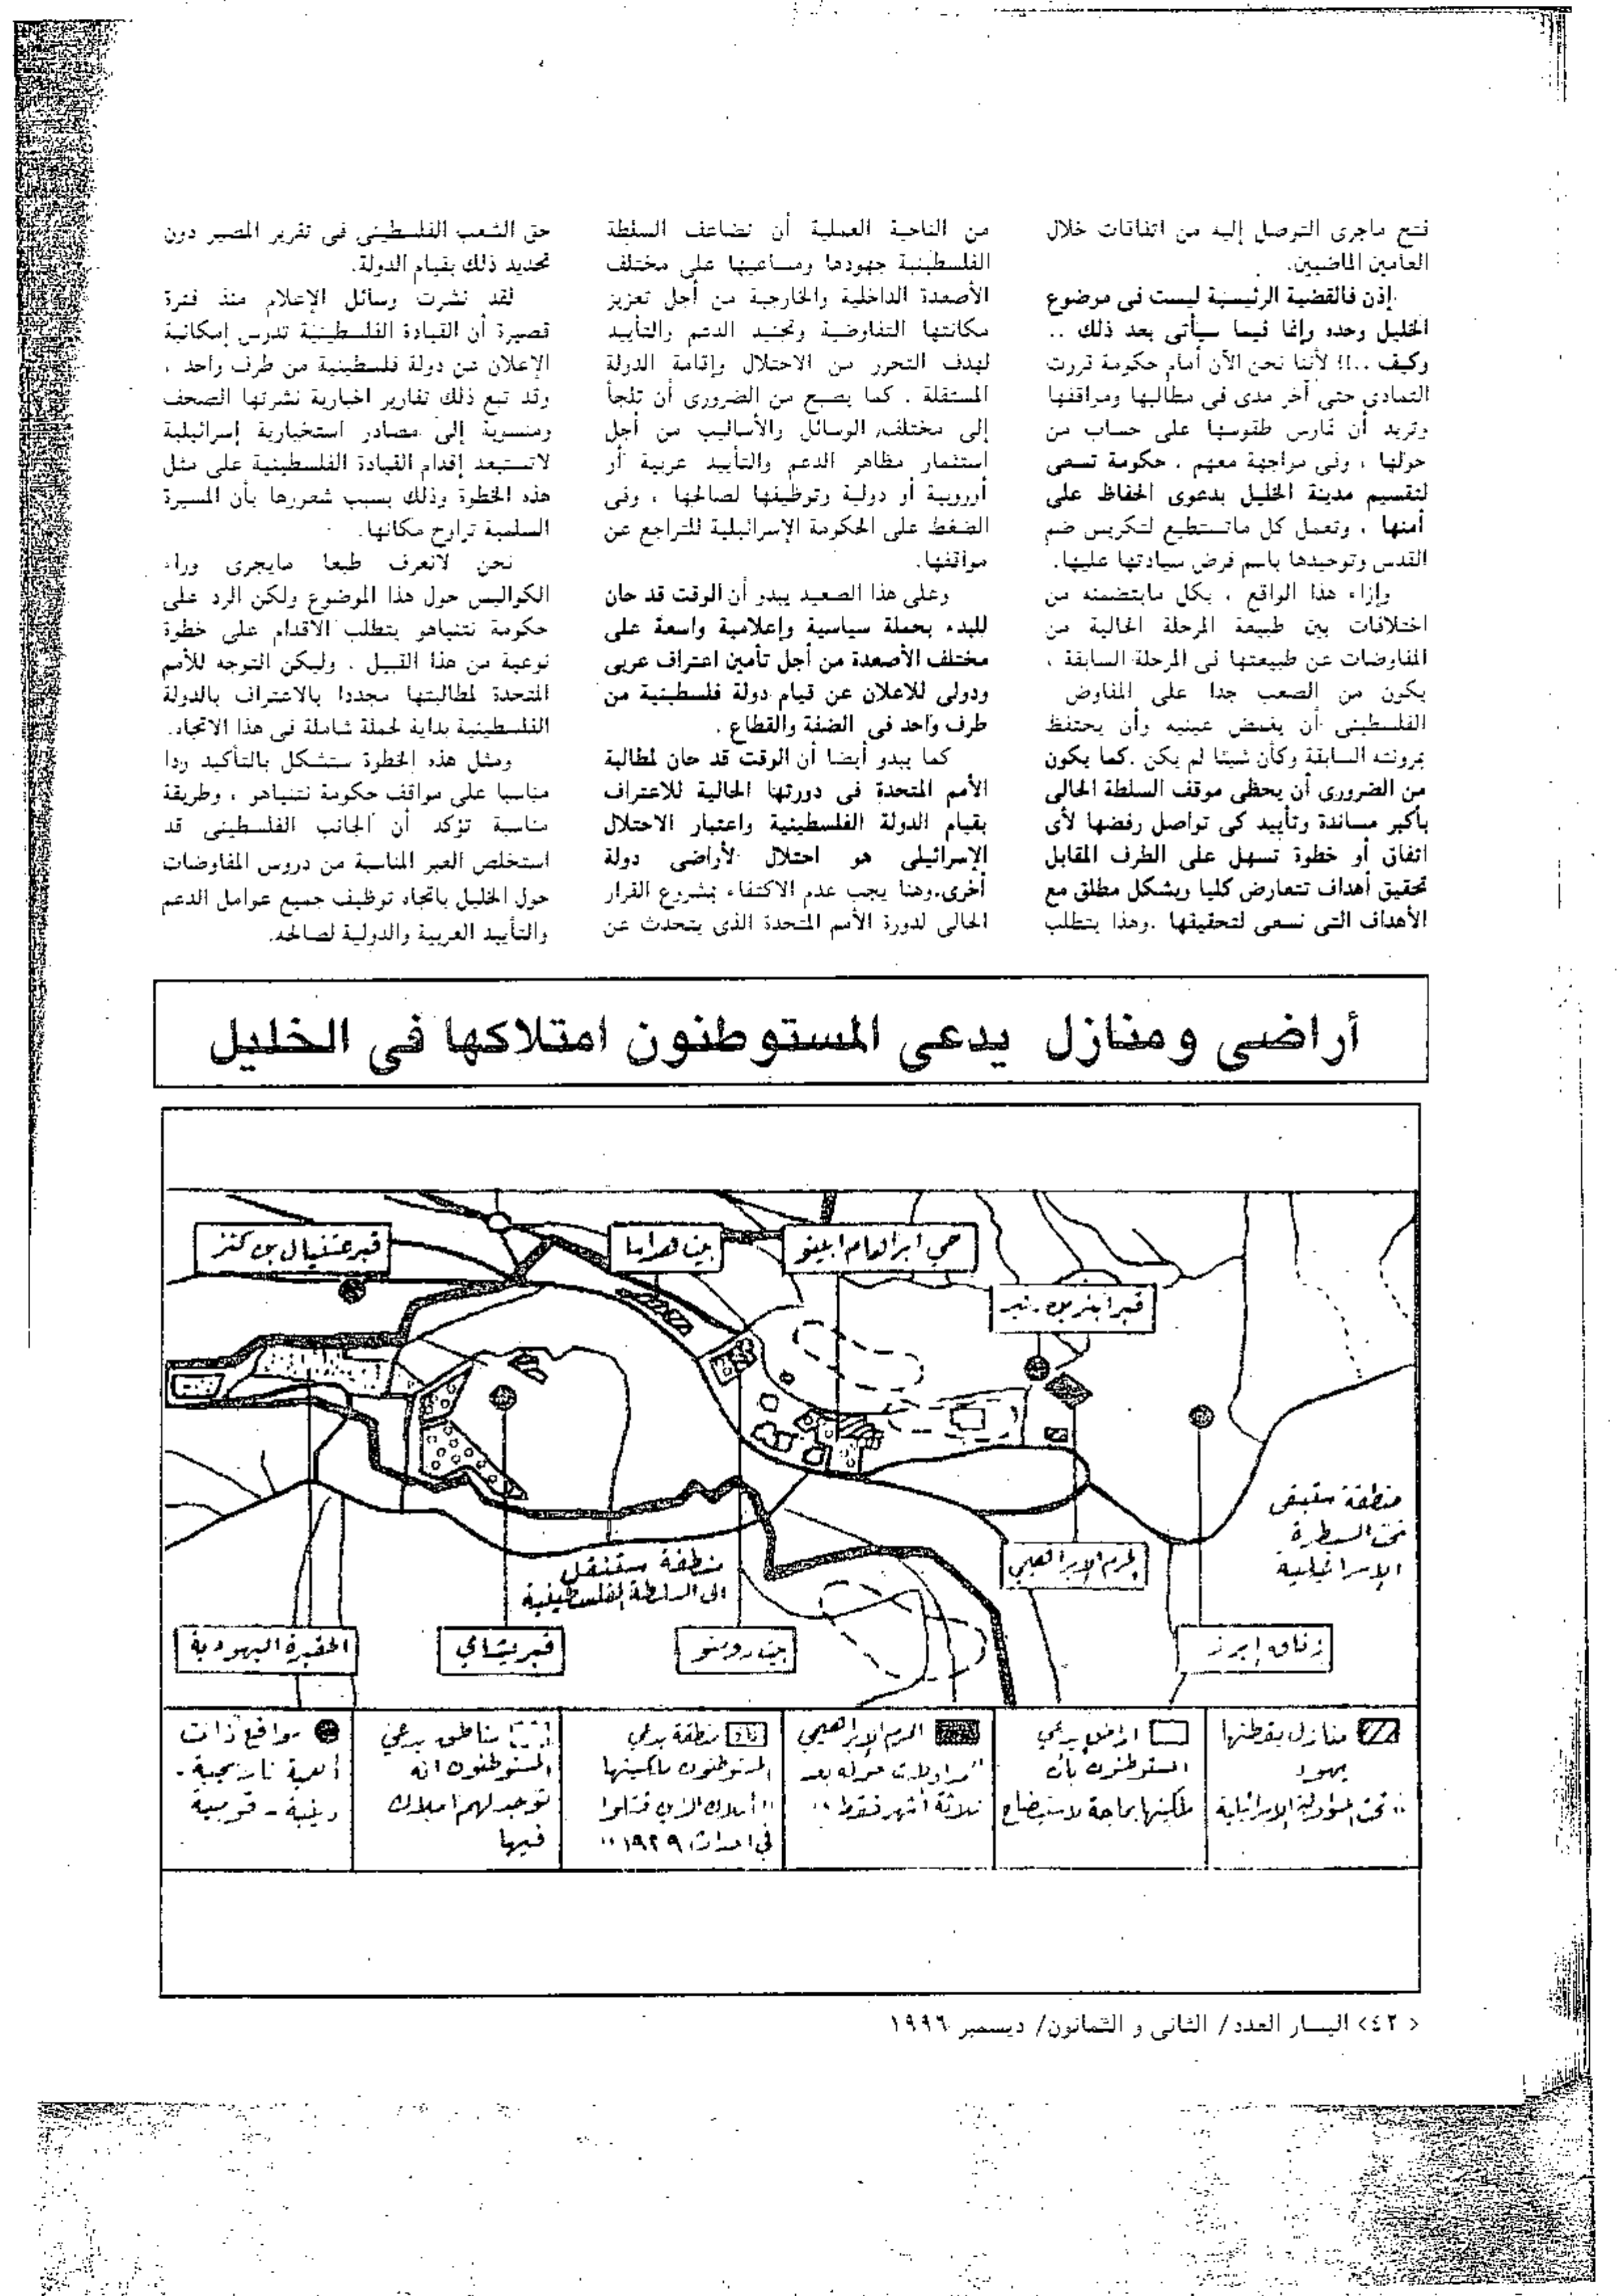 فتح ماجرى التوصل إليه من اتفاقات خلال
العامين الماضيين.
إذن فالقضية الرئيسية ليست فى موضوع
الخليل وحده وإنما فيما سيأتى بعد ذلك ..
وكيف ..!! لأننا نحن الآن أمام حكومة قررت
التمادى حتى آخر مدى فى مطالبها ومراقفها
وتريد أن تمارس طقوسها على حساب من
حولها ، وفى مواجهة معهم . حكومة تسعى
لتقسيم مدينة الخليل بدعوى الحفاظ على
أمنها ، وتعمل كل ماتستطيع لتكريس ضم
القدس وتوحيدها باسم فرض سيادتها عليها.
وإزاء هذا الواقع ، بكل مايتضمنه من
اختلافات بين طبيعة المرحلة الحالية من
المفاوضات عن طبيعتها فى المرحلة السابقة ،
يكون من الصعب جدا على المفاوض
الفلسطينى أن يغمض عينيه وأن يحتفظ
بمرونته السابقة وكأن شيئا لم يكن .كما يكون
من الضرورى أن يحظى موقف السلطة الحالى
بأكبر مساندة وتأييد كى تواصل رفضها لأى
اتفاق أو خطوة تسهل على الطرف المقابل
تحقيق أهداف تتعارض كليا وبشكل مطلق مع
الأهداف التى نسعى لتحقيقها .وهذا يتطلب
من الناحية العملية أن تضاعف السلطة
الفلسطينية جهودها ومساعيها على مختلف
الأصعدة الداخلية والخارجية من أجل تعزيز
مكانتها التفاوضية وتجنيد الدعم والتأييد
لهدف التحرر من الاحتلال وإقامة الدولة
المستقلة . كما يصبح من الضرورى أن تلجأ
إلى مختلف الوسائل والأساليب من أجل
استثمار مظاهر الدعم والتأييد عربية أو
أوروبية أو دولية وتوظيفها لصالحها ، وفى
الضغط على الحكومة الإسرائيلية للتراجع عن
مواقفها.
وعلى هذا الصعيد يبدو أن الوقت قد حان
للبدء بحملة سياسية وإعلامية واسعة على
مختلف الأصعدة من أجل تأمين اعتراف عربى
ودولى للاعلان عن قيام دولة فلسطينية من
طرف واحد فى الضفة والقطاع .
كما يبدو أيضا أن الوقت قد حان لمطالبة
الأمم المتحدة فى دورتها الحالية للاعتراف
بقيام الدولة الفلسطينية واعتبار الاحتلال
الإسرائيلى هو احتلال لأراضى دولة
أخرى.وهنا يجب عدم الاكتفاء بمشروع القرار
الحالى لدورة الأمم المتحدة الذى يتحدث عن
حق الشعب الفلسطينى فى تقرير المصير دون
تحديد ذلك بقيام الدولة.
لقد نشرت وسائل الإعلام منذ فترة
قصيرة أن القيادة الفلسطينية تدرس إمكانية
الإعلان عن دولة فلسطينية من طرف واحد ،
وقد تبع ذلك تقارير اخبارية نشرتها الصحف
ومنسوبة إلى مصادر استخبارية إسرائيلية
لاتستبعد إقدام القيادة الفلسطينية على مثل
هذه الخطوة وذلك بسبب شعورها بأن المسيرة
السلمية تراوح مكانها.
نحن لانعرف طبعا مايجرى وراء
الكواليس حول هذا الموضوع ولكن الرد على
حكومة نتنياهو يتطلب الاقدام على خطوة
نوعية من هذا القبيل . وليكن التوجه للأمم
المتحدة لمطالبتها مجددا بالاعتراف بالدولة
الفلسطينية بداية لحملة شاملة فى هذا الاتجاه.
ومثل هذه الخطوة ستشكل بالتأكيد ردا
مناسبا على مواقف حكومة نتنياهو ، وطريقة
مناسبة تؤكد أن الجانب الفلسطينى قد
استخلص العبر المناسبة من دروس المفاوضات
حول الخليل باتجاه توظيف جميع عوامل الدعم
والتأييد العربية والدولية لصالحه.
أراضى ومنازل يدعى المستوطنون امتلاكها فى الخليل
حي ابراهام ابينو
بيت هداسا
قبر عتنيال بن كنز
قبر ابنر بن نير
منطقة ستبقى
تحت السيطرة
الإسرائيلية
الحرم الإبراهيمي
منطقة ستنتقل
الى السلطة الفلسطينية
زقاق إبرز
بيت رومنو
قبر يشاي
المقبرة اليهودية
منازل يقطنها
يهود
"تحت المسؤولية الإسرائيلية
اراض يدعي
المستوطنون بأن
ملكيتها بحاجة لاستيضاح
الحرم الإبراهيمي
"مداولات حوله بعد
ثلاثة أشهر فقط"
منطقة يدعي
المستوطنون ملكيتها
"أملاك الذين قتلوا
في احداث ١٩٢٩"
مناطق يدعي
المستوطنون انه
توجد لهم املاك
فيها
مواقع ذات
أهمية تاريخية -
دينية - قومية
< ٤٢> اليسار العدد/ الثانى و الثمانون/ ديسمبر ١٩٩٦